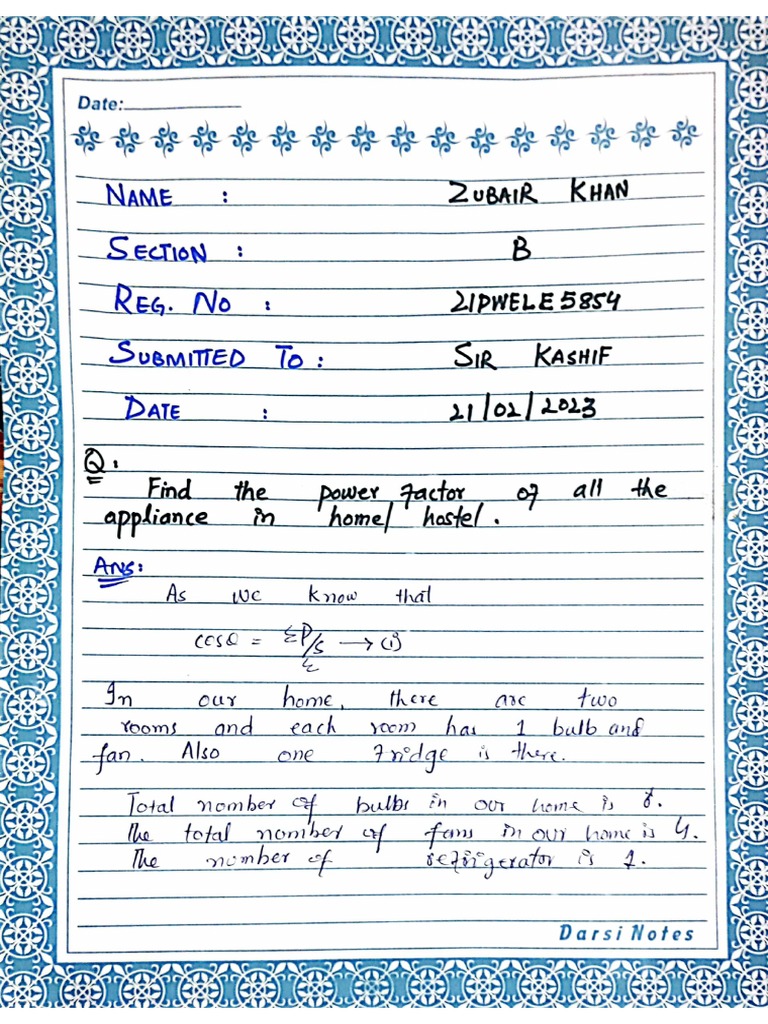 Date:
NAME : ZUBAIR KHAN
SECTION : B
REG. NO : 21PWELE5854
SUBMITTED TO : SIR KASHIF
DATE : 21/02/2023
Q:
Find the power factor of all the
appliance in home/ hostel.
Ans:
As we know that
cosθ = ΣP/S → (i)
Σ
In our home, there are two
rooms and each room has 1 bulb and
fan. Also one fridge is there.
Total nomber of bulbs in our home is 8.
The total nomber of fans in our home is 4.
The nomber of refrigerator is 1.
Darsi Notes